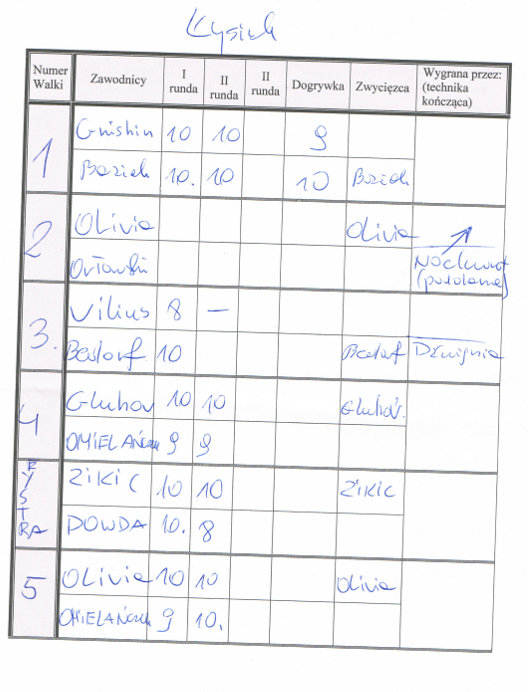 Łysiek
Numer Walki Zawodnicy I runda II runda II runda Dogrywka Zwycięzca Wygrana przez: (technika kończąca)
1 Grishin 10 10 9
Boziek 10. 10 10 Boziek
2 Olivia Olivia
Orłowski Nockaut (poddanie)
3. Vilius 8 —
Bestorf 10 Bestorf Dźwignia
4 Gluhov 10 10 Gluhov.
OMIELAŃCZUK 9 9
EXSTRA ZIKIC 10 10 ZIKIC
DOWDA 10. 8
5 Olivia 10 10 Olivia
OMIELAŃCZUK 9 10.